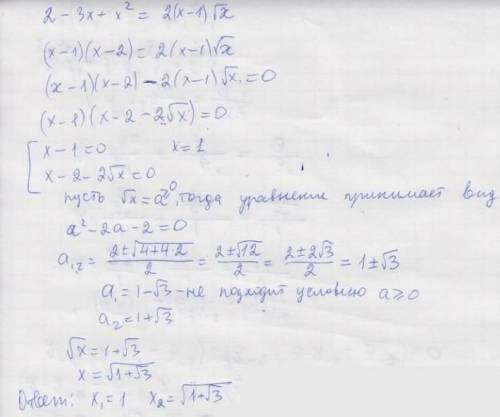 2 - 3x + x² = 2(x-1)√x
(x-1)(x-2) = 2(x-1)√x
(x-1)(x-2) - 2(x-1)√x = 0
(x-1)(x-2-2√x) = 0
[ x-1=0 x=1
x-2-2√x=0
пусть √x=a≥0, тогда уравнение принимает вид
a²-2a-2=0
a₁,₂ = (2±√(4+4·2))/2 = (2±√12)/2 = (2±2√3)/2 = 1±√3
a₁=1-√3 - не подходит условию a≥0
a₂=1+√3
√x=1+√3
x=√(1+√3)
Ответ: x₁=1 x₂=√(1+√3)